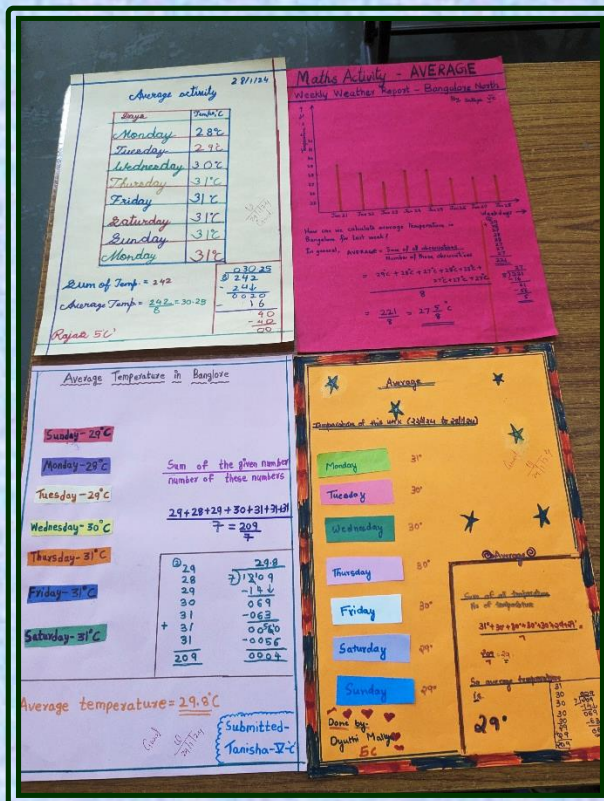 28/1/24
Average activity
Days Temp °C
Monday 28°c
Tuesday 29°c
Wednesday 30°c
Thursday 31°c
Friday 31°c
Saturday 31°c
Sunday 31°c
Monday 31°c
Sum of Temp. = 242
Average Temp = 242/8 = 30.25
03025
242
- 24↓
0020
- 16
40
- 40
00
Rajas 5'C'
Maths Activity - AVERAGE
Weekly Weather Report - Bangalore North
Jan 21 Jan 22 Jan 23 Jan 24 Jan 25 Jan 26 Jan 27 Jan 28
Weekdays
How can we calculate average temperature in
Bangalore for last week?
In general, AVERAGE = Sum of all observations
Number of those observations
8
= 221/8 = 27 5/8 °C
Average Temperature in Banglore
Sunday- 29°C
Monday- 28°C
Tuesday- 29°C
Wednesday- 30°C
Thursday- 31°C
Friday- 31°C
Saturday- 31°C
Sum of the given number
number of these numbers
29+28+29+30+31+31+31
7 = 209
7
29
28
29
30
31
+ 31
31
209
29.8
-14↓
069
-063
-0056
0004
Average temperature = 29.8°C
Good
Submitted-
Tanisha-V-'c'
Average
Temperature of this week (22/1/24 to 28/1/24)
Monday 31°
Tuesday 30°
Wednesday 30°
Thursday 30°
Friday 30°
Saturday 29°
Sunday 29°
Average
Sum of all temperature
No of temperature
31°+30°+30°+30°+30°+29+29°
7
209
7
So average temperature
is
29°
Done by:
5C